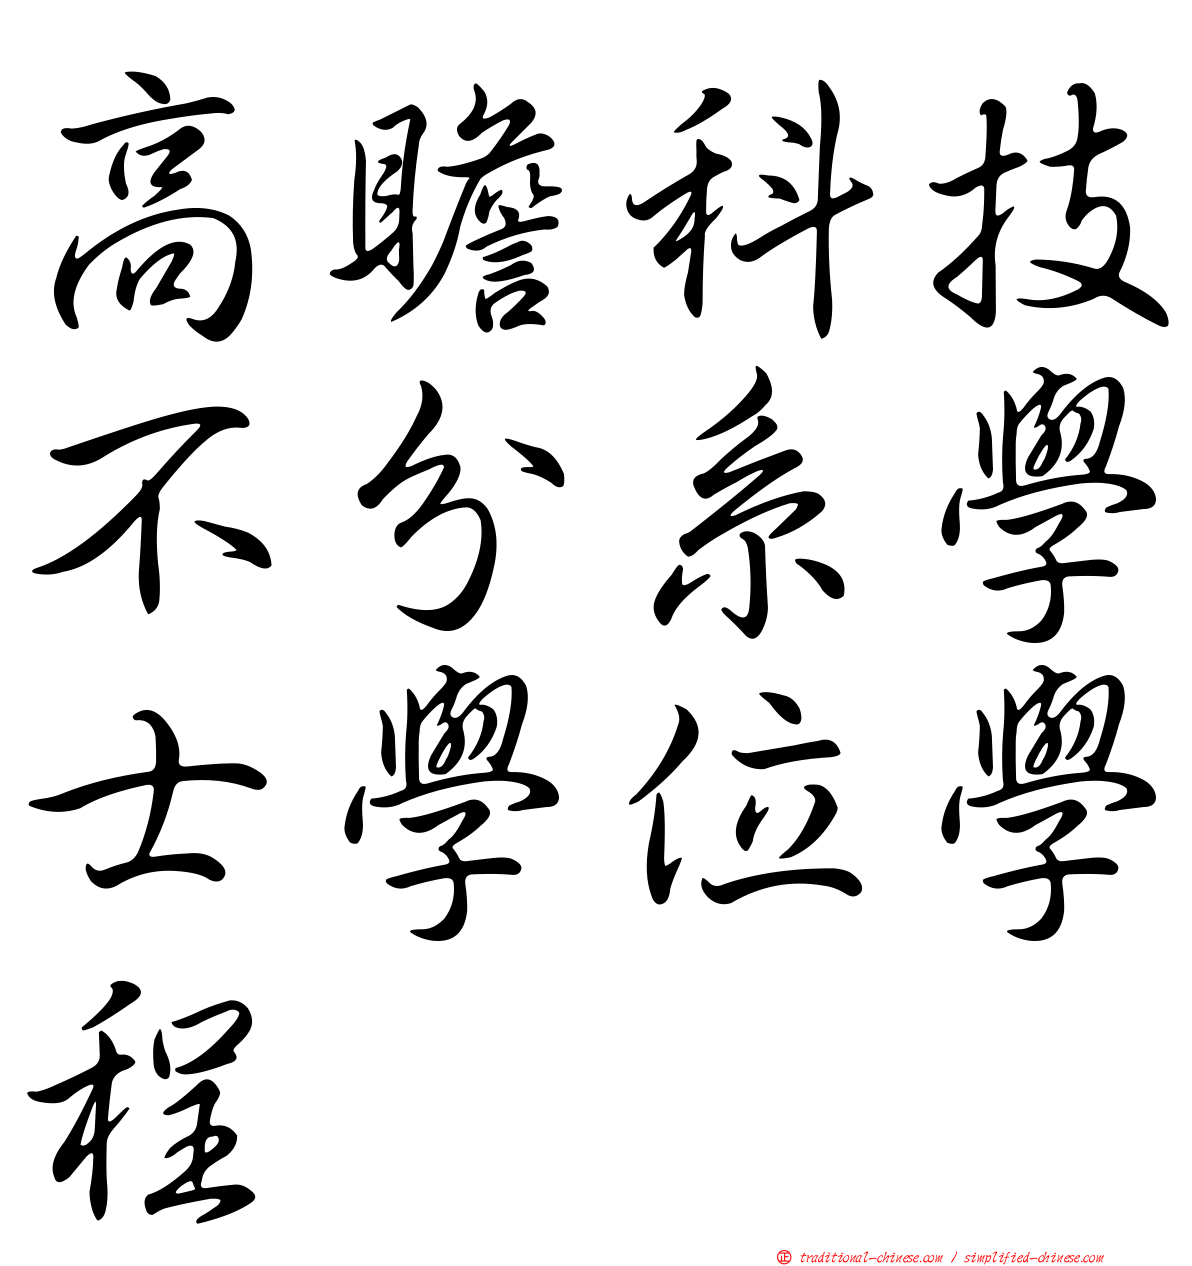 高瞻科技
不分系學
士學位學
程
正 traditional-chinese.com / simplified-chinese.com